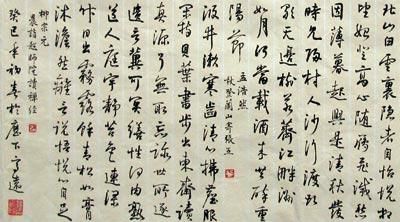 北山白雲裏隱者自怡悅相
望始登高心隨飛滅愁
因薄暮起興是清秋發
時見歸村人沙行渡頭
歇天邊樹若薺江畔洲
如月何當載酒來共醉重
陽節
孟浩然
秋登蘭山寄張五
汲井漱寒齒清心拂塵服
閒持貝葉書步出東齋讀
真源了無取妄跡世所逐
遺言冀可冥繕性何由熟
道人庭宇靜苔色連深
竹日出霧露餘青松如膏
沐澹然離言說悟悅心自足
柳宗元
晨詣超師院讀禪經
癸巳年初春於歷下